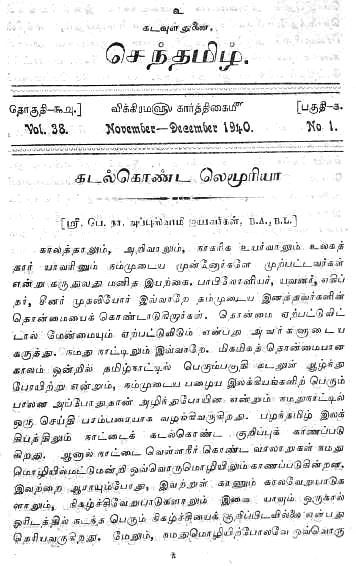 உ
கடவுள் துணை.
செந்தமிழ்.
தொகுதி-௩௮.] விக்கிரமஹு கார்த்திகைமீ [பகுதி-௧.
Vol. 38. November—December 1940. No. 1.
கடல்கொண்ட லெமூரியா
[ஸ்ரீ. பெ. நா. அப்புஸ்வாமி ஐயரவர்கள், B.A., B.L.]
காலத்தாலும், அறிவாலும், நாகரிக உயர்வாலும் உலகத்
தார் யாவரினும் நம்முடைய முன்னோர்களே முற்பட்டவர்கள்
என்று கருதுவது மனித இயற்கை. பாபிலோனியர், யவனர், எகிப்
தர், சீனர் முதலியோர் இவ்வாறே தம்முடைய இனத்தவர்களின்
தொன்மையைக் கொண்டாடுகிறார்கள். தொன்மை ஏற்பட்டுவிட்
டால் மேன்மையும் ஏற்பட்டுவிடும் என்பது அவர்களுடைய
கருத்து. நமது நாட்டிலும் இவ்வாறே. மிகமிகத் தொன்மையான
காலம் ஒன்றில் தமிழ்நாட்டில் பெரும்பகுதி கடலுள் ஆழ்ந்து
போயிற்று என்றும், நம்முடைய பழைய இலக்கியங்களிற் பெரும்
பாலன அப்போதுதான் அழிந்துபோயின என்றும் நமதுநாட்டில்
ஒரு செய்தி பரம்பரையாக வழங்கிவருகிறது. பழந்தமிழ் இலக்
கியத்திலும் நாட்டைக் கடல்கொண்ட குறிப்புக் காணப்படு
கிறது. ஆனால் நாட்டை வெள்ளநீர் கொண்ட வரலாறுகள் நமது
மொழியில்மட்டுமன்றி ஒவ்வொருமொழியிலும் காணப்படுகின்றன.
இவற்றை ஆராயும்போது, இவற்றுள் காணும் காலவேறுபாடுக
ளாலும், நிகழ்ச்சிவேறுபாடுகளாலும் இவை யாவும் ஒருகால்
ஓரிடத்தில் நடந்த பெரும் நிகழ்ச்சியைக் குறிப்பிடவில்லை என்பது
தெரியவருகிறது. மேலும், நமதுமொழியிற்போலவே ஒவ்வொரு